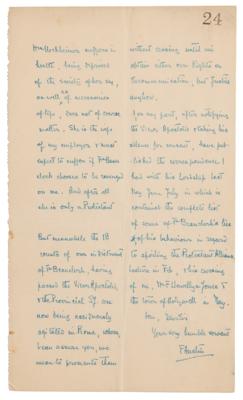 24
Mrs Hochheimer suffers in
health, being deprived
of the society of her sex,
as well as necessaries
of life, does not of course
matter. She is the wife
of my employer & must
expect to suffer if Fr Beau
clerk chooses to be revenged
on me. And after all
she is only a Protestant

But meanwhile the 18
counts of our indictment
of Fr Beauclerk, having
passed the Vicar Apostolic
& the Provincial S.J. are
now being assiduously
agitated in Rome, where,
been assure you, we
mean to prosecute them
without ceasing until we
obtain either our Rights or
Excommunication, but Justice
anyhow.
For my part, after notifying
the Vicar Apostolic & taking his
silence for consent, I have pub-
lished the correspondence I
had with his Lordship last
May June July in which is
contained the complete list
of some of Fr Beauclerk's lies
& of his behaviour in regard
to spoiling the Protestant Alliance
lecture in Feb, & his evening
of me, Mr Llewellyn Jones &
the town of Holywell in May.
I am, Sirs,
Your very humble servant
F. Austin